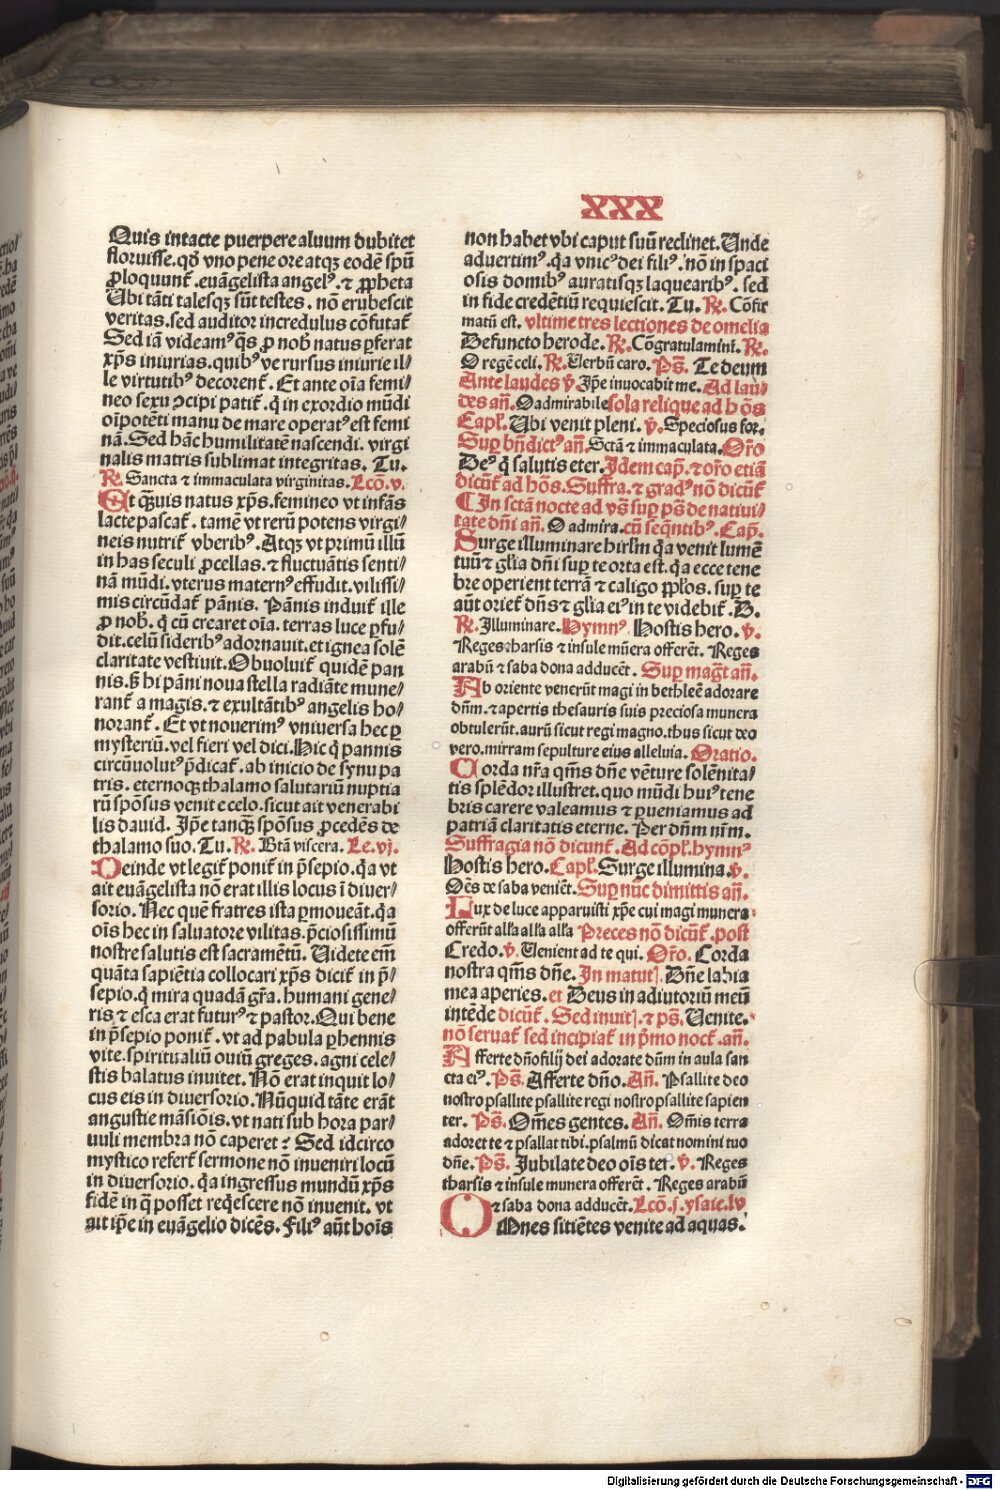 XXX
Quis intacte puerpere aluum dubitet
floruisse. qđ vno pene ore atqꝫ eodē spū
ꝓloquunt̃. euāgelista angelꝰ. ⁊ ꝓpheta
Vbi tāti talesqꝫ sūt testes. nō erubescit
veritas. sed auditor incredulus cōfutat̃
Sed iā videamꝰ q̄s ꝓ nob̄ natus ꝑferat
xp̄s iniurias. quibꝰ ve rursus iniurie il⸗
le virtutibꝰ decorent̃. Et ante oīa femi⸗
neo sexu ꝯcipi patit̃. q̇ in exordio mūdi
oīpotēti manu de mare operatꝰ est femi
nā. Sed hāc humilitatē nascendi. virgi
nalis matris sublimat integritas. Tu.
R̃. Sancta ⁊ immaculata virginitas. Lcō. v.
Sit q̄uis natus xp̄s. femineo vt infās
lacte pascat̃. tamē vt rerū potens virgi⸗
neis nutrit̃ vberibꝰ. Atqꝫ vt primū illū
in has seculi ꝓcellas. ⁊ fluctuātis senti⸗
nā mūdi. vterus maternꝰ effudit. vilissi⸗
mis circūdat̃ pānis. Pānis induit̃ ille
ꝓ nob̄. q̇ cū crearet oīa. terras luce ꝑfu⸗
dit. celū sideribꝰ adornauit. et ignea solē
claritate vestiuit. Obuoluit̃ quidē pan
nis. s̄ hi pāni noua stella radiāte mune⸗
rant̃ a magis. ⁊ exultātibꝰ angelis ho⸗
norant̃. Et vt nouerimꝰ vniuersa hec ꝑ
mysteriū. vel fieri vel dici. Hic q̇ pannis
circūuolutꝰ p̄dicat̃. ab inicio de synu pa
tris. eternoqꝫ thalamo salutariū nuptia
rū spōsus venit e celo. sicut ait venerabi
lis dauid. Ip̄e tanq̄ꝫ spōsus ꝓcedēs de
thalamo suo. Tu. R̃. Btā viscera. Le. vj.
Deinde vt legit̃ ponit̃ in p̄sepio. q̇a vt
ait euāgelista nō erat illis locus ī diuer⸗
sorio. Nec quē fratres ista ꝑmoueāt. q̇a
oīs hec in saluatore vilitas. p̄ciosissimū
nostre salutis est sacramētū. Videte em̄
quāta sapiētia collocari xp̄s dicit̃ in p̄⸗
sepio. q̇ mira quadā gr̄a. humani gene⸗
ris ⁊ esca erat futurꝰ ⁊ pastor. Qui bene
in p̄sepio ponit̃. vt ad pabula ꝑhennis
vite. spiritualiū ouiū greges. agni cele⸗
stis balatus inuitet. Nō erat inquit lo⸗
cus eis in diuersorio. Nūquid tāte erāt
angustie māsiōis. vt nati sub hora par⸗
uuli membra nō caperet ? Sed idcirco
mystico refert̃ sermone nō inueniri locū
in diuersorio. q̇a ingressus mundū xp̄s
fidē in q̇ posset req̇escere nō inuenit. vt
ait ip̄e in euāgelio dicēs. Filiꝰ aūt hoīs
non habet vbi caput suū reclinet. Unde
aduertimꝰ. q̇a vnicꝰ dei filiꝰ. nō in spaci
osis domibꝰ auratisqꝫ laquearibꝰ. sed
in fide credētiū requiescit. Tu. R̃. Cōfir
matū est. vltime tres lectiones de omelia
Defuncto herode. R̃. Cōgratulamini. R̃.
O regē celi. R̃. Verbū caro. Ps̄. Te deum
Ante laudes v̄. Ip̄e inuocabit me. Ad lau⸗
des añ. O admirabile sola relique ad hōs
Capl̄. Ubi venit pleni. v̄. Speciosus for.
Suꝑ bn̄dictꝰ añ. Sctā ⁊ immaculata. Or̄o
Deꝰ q̇ salutis eter. Idem cap̄. ⁊ or̄o etiā
dicūt̃ ad hōs. Suffra. ⁊ gradꝰ nō dicūt̃
¶ In sctā nocte ad vs̄ suꝑ ps̄ de natiui⸗
tate dn̄i añ. O admira. cū seq̄ntibꝰ. Cap̄.
Surge illuminare hirl̄m q̇a venit lumē
tuū ⁊ gl̄ia dn̄i suꝑ te orta est. q̇a ecce tene
bre operient terrā ⁊ caligo ppl̄os. suꝑ te
aūt oriet̃ dn̄s ⁊ gl̄ia eiꝰ in te videbit̃. D.
R̃. Illuminare. Hymnꝰ Hostis hero. v̄.
Reges tharsis ⁊ insule mūera offerēt. Reges
arabū ⁊ saba dona adducēt. Suꝑ mag̃t añ.
Ab oriente venerūt magi in bethleē adorare
dn̄m. ⁊ apertis thesauris suis preciosa munera
obtulerūt. aurū sicut regi magno. thus sicut deo
vero. mirram sepulture eius alleluia. Oratio.
Corda nr̄a qm̄s dn̄e vēture solēnita⸗
tis splēdor illustret. quo mūdi huiꝰ tene
bris carere valeamus ⁊ ꝑueniamus ad
patriā claritatis eterne. Per dn̄m nr̄m.
Suffragia nō dicunt̃. Ad cōpl̄. hymnꝰ
Hostis hero. Capl̄. Surge illumina. v̄.
Oēs de saba veniēt. Suꝑ nūc dimittis añ.
Lux de luce apparuisti xp̄e cui magi munera
offerūt alla alla alla Preces nō dicūt̃. post
Credo. v̄. Venient ad te qui. Or̄o. Corda
nostra qm̄s dn̄e. In matuṫ. Dn̄e labia
mea aperies. et Deus in adiutoriū meū
intēde dicūt̃. Sed inuiṫ. ⁊ ps̄. Uenite.
nō seruat̃ sed incipiat̃ in p̄mo noct̃. añ.
Afferte dn̄o filij dei adorate dn̄m in aula san
cta eiꝰ. Ps̄. Afferte dn̄o. Añ. Psallite deo
nostro psallite psallite regi nostro psallite sapien
ter. Ps̄. Om̄es gentes. Añ. Om̄is terra
adoret te ⁊ psallat tibi. psalmū dicat nomini tuo
dn̄e. Ps̄. Jubilate deo oīs ter. v̄. Reges
tharsis ⁊ insule munera offerēt. Reges arabū
⁊ saba dona adducēt. Lcō. j. ysaie. lv
OMnes sitiētes venite ad aquas.
Digitalisierung gefördert durch die Deutsche Forschungsgemeinschaft - DFG